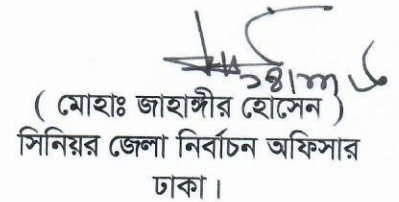 ( মোহাঃ জাহাঙ্গীর হোসেন )
সিনিয়র জেলা নির্বাচন অফিসার
ঢাকা।